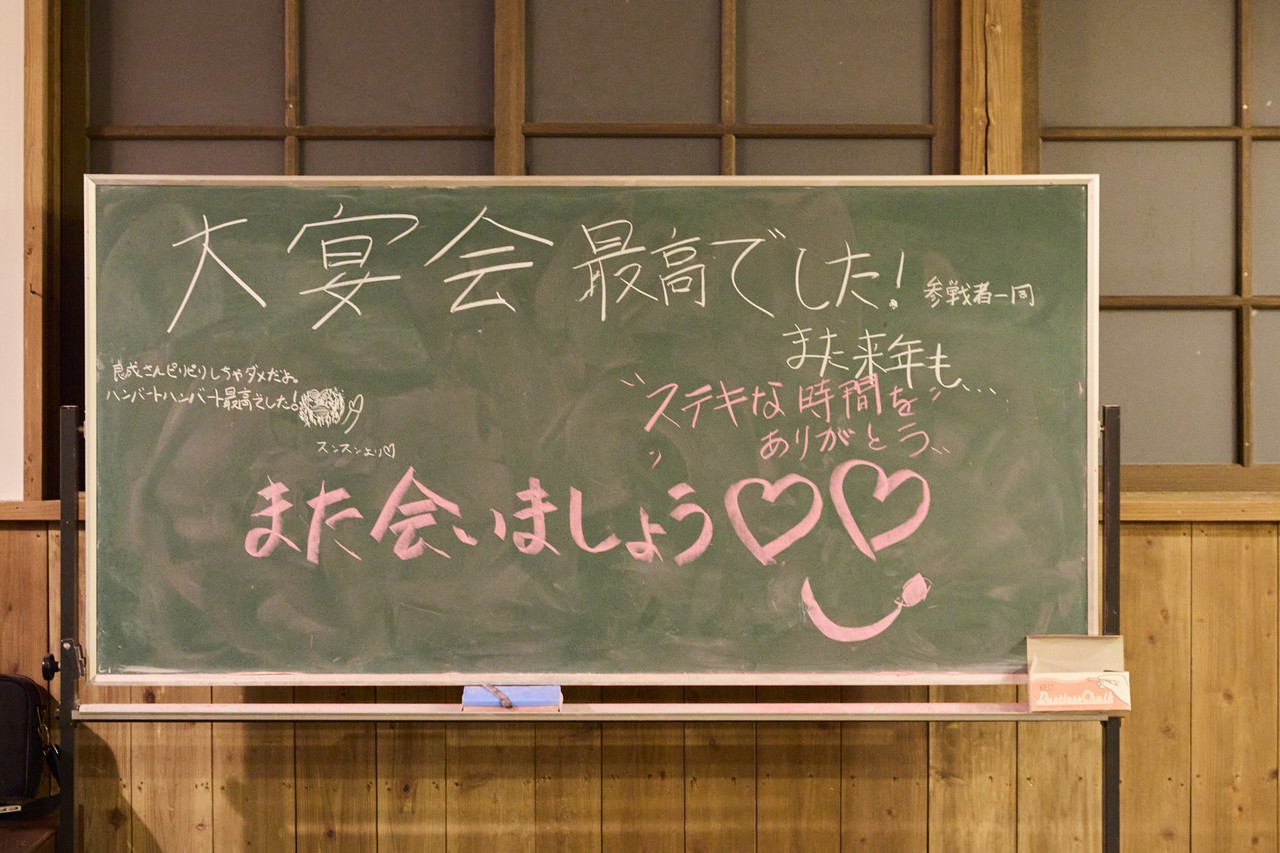 大宴会最高でした！参戦者一同
また来年も、、、
良成さんピリピリしちゃダメだよ。
ハンバートハンバート最高でした！
スンスンより♡
ステキな時間を
ありがとう、、
また会いましょう♡♡
DustlessChalk